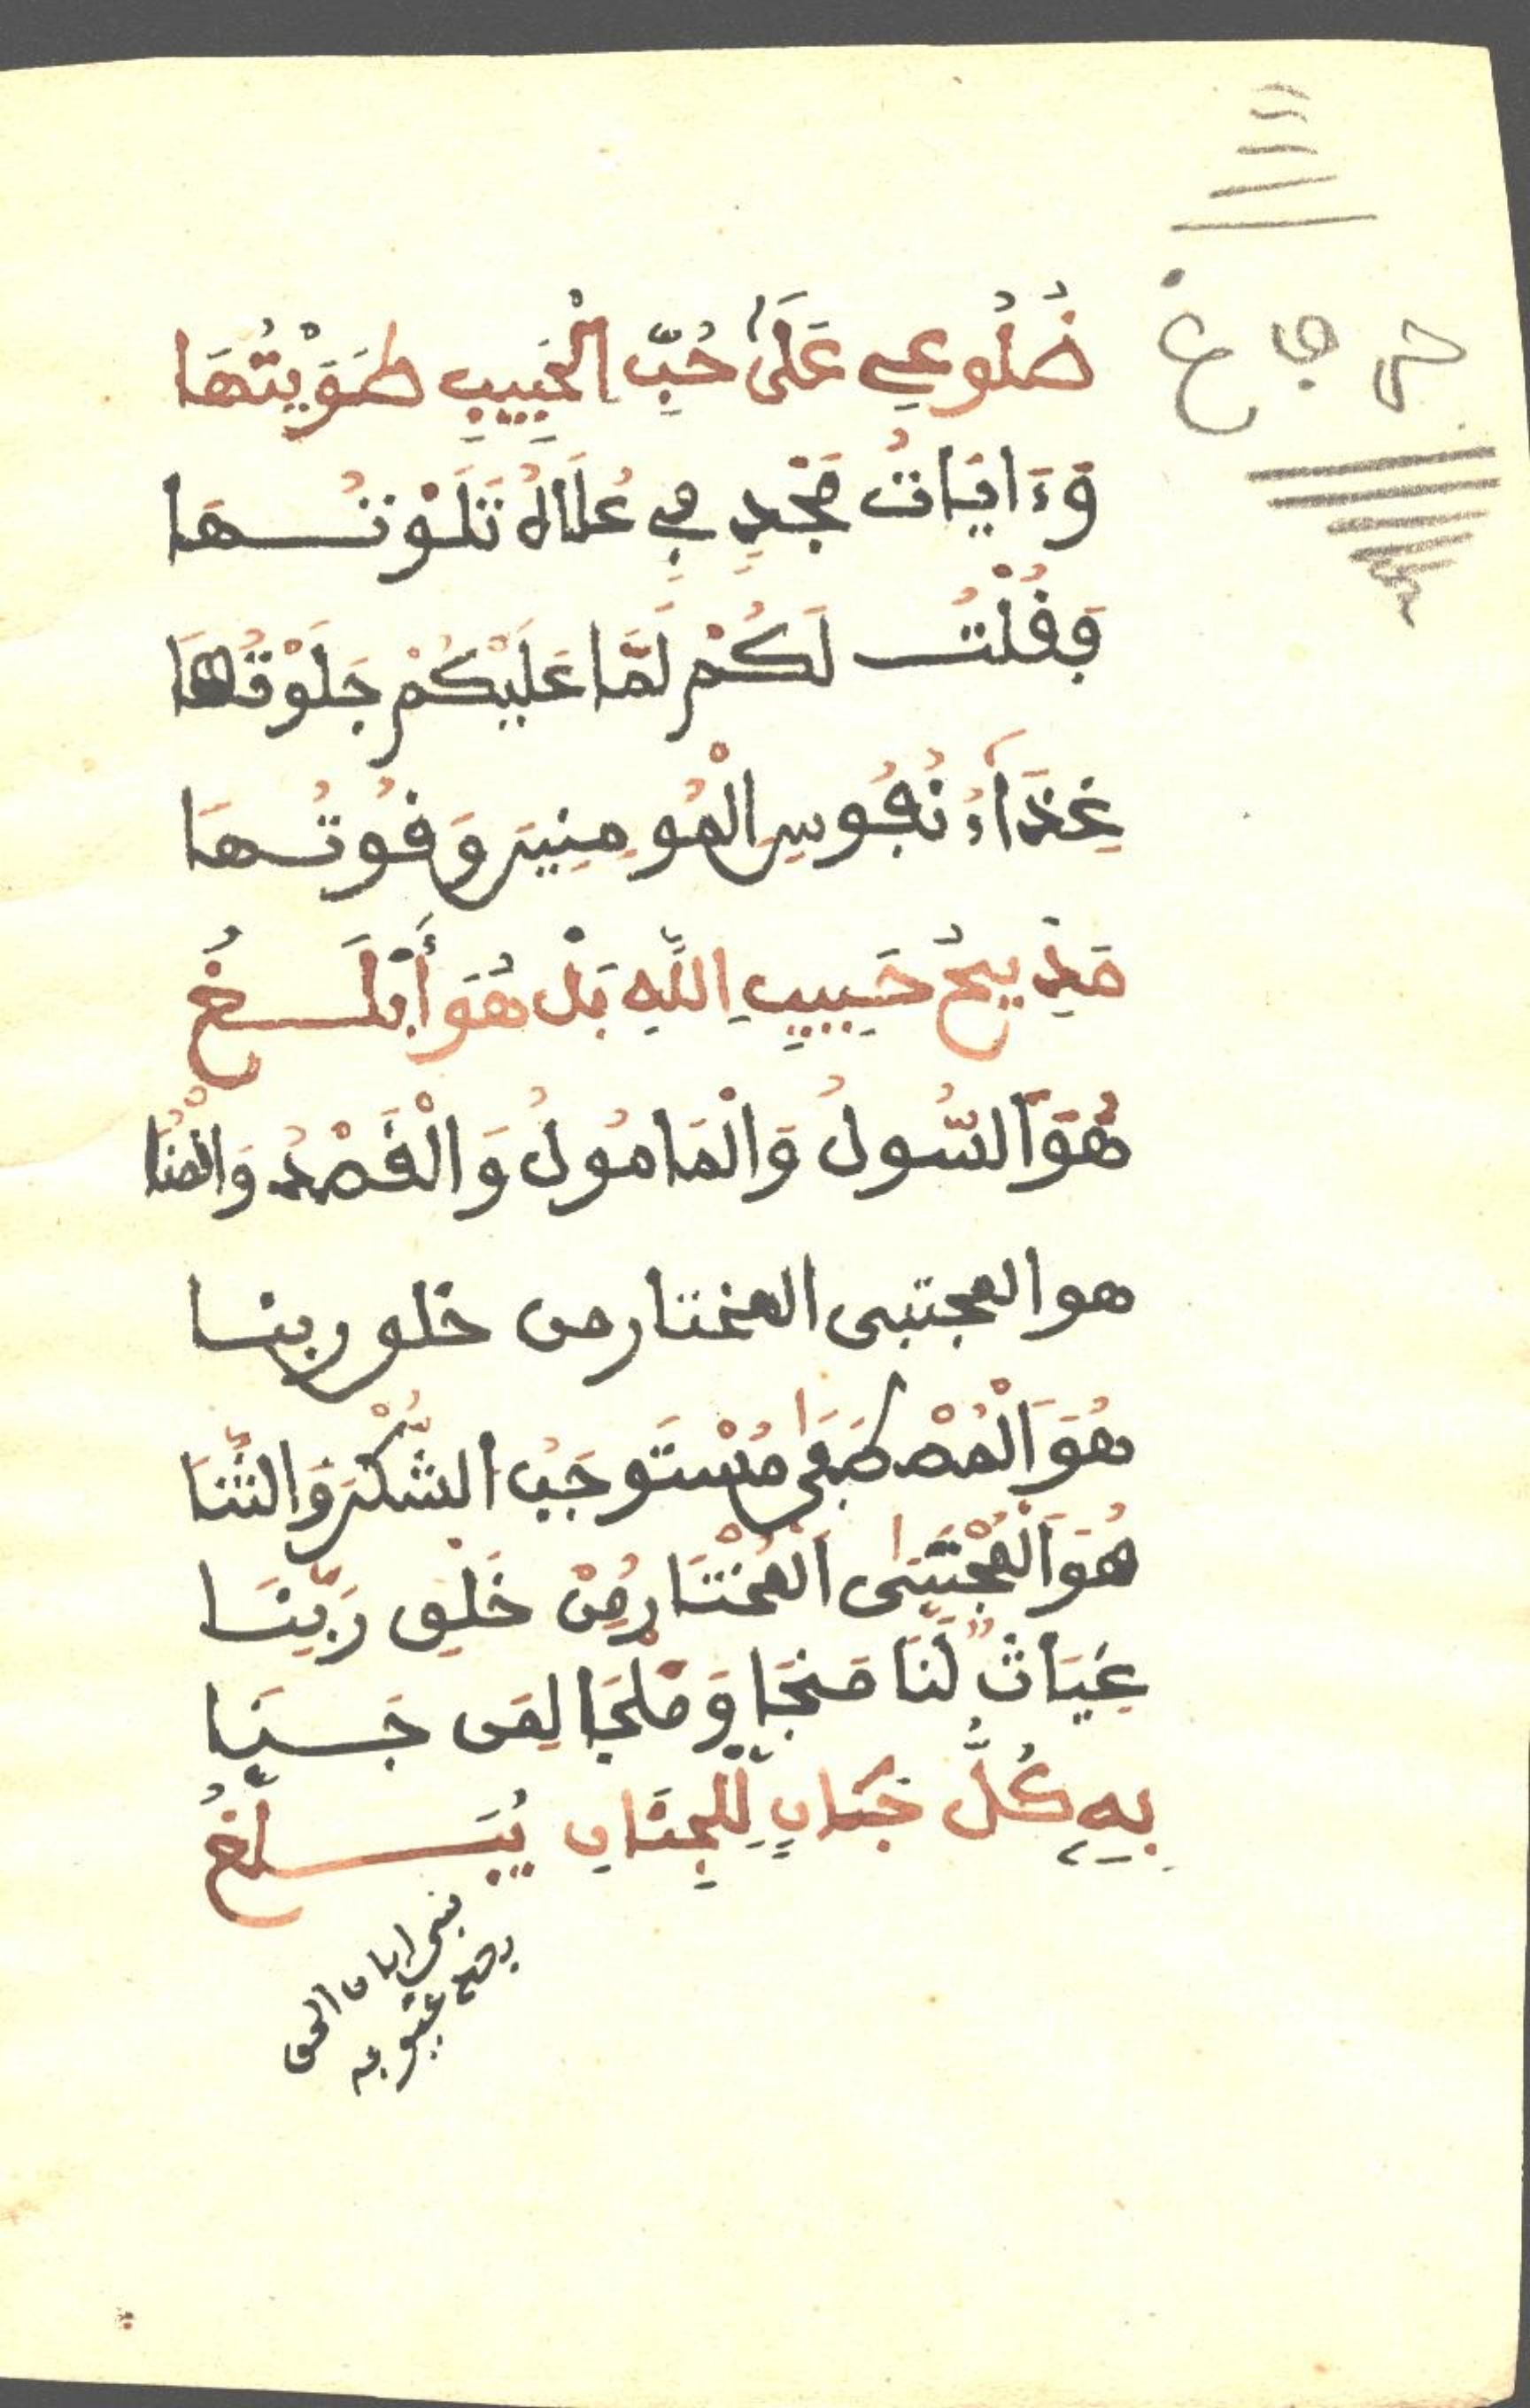 ضُلُوعِي عَلَىٰ حُبِّ الْحَبِيبِ طَوَيْتُهَا
وَءَايَاتُ مَجْدٍ فِي عُلَاهُ تَلَوْتُهَا
وَقُلْتُ لَكُمْ لَمَّا عَلَيْكُمْ جَلَوْتُهَا
غِذَاءُ نُفُوسِ الْمُومِنِينَ وَقُوتُهَا
مَدِيحُ حَبِيبِ اللَّهِ بَلْ هُوَ أَبْلَغُ
هُوَ السُّولُ وَالْمَامُولُ وَالْقَصْدُ وَالْمُنَا
هو المجتبى المختار من خلق ربنا
هُوَ الْمُصْطَفَىٰ مُسْتَوجِبُ الشُّكْرِ وَالثَّنَا
هُوَ الْمُجْتَبَىٰ الْمُخْتَارُ مِنْ خَلْقِ رَبِّنَا
غِيَاثٌ لَنَا مَنجَا وَمَلْجَا لِمَن جَنَا
بِهِ كُلُّ جَانٍ لِلْجِنَانِ يُبَلَّغُ